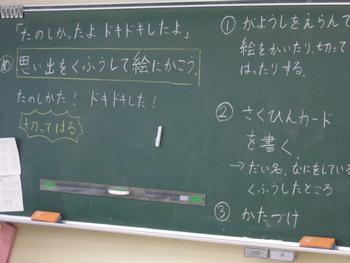 「たのしかったよ ドキドキしたよ」
め 思い出をくふうして絵にかこう。
たのしかた! ドキドキした!
切ってはる
① がようしをえらんで
絵をかいたり、切って
はったりする。
② さくひんカード
を書く。
→だい名、なにをしている
くふうしたところ
③ かたづけ